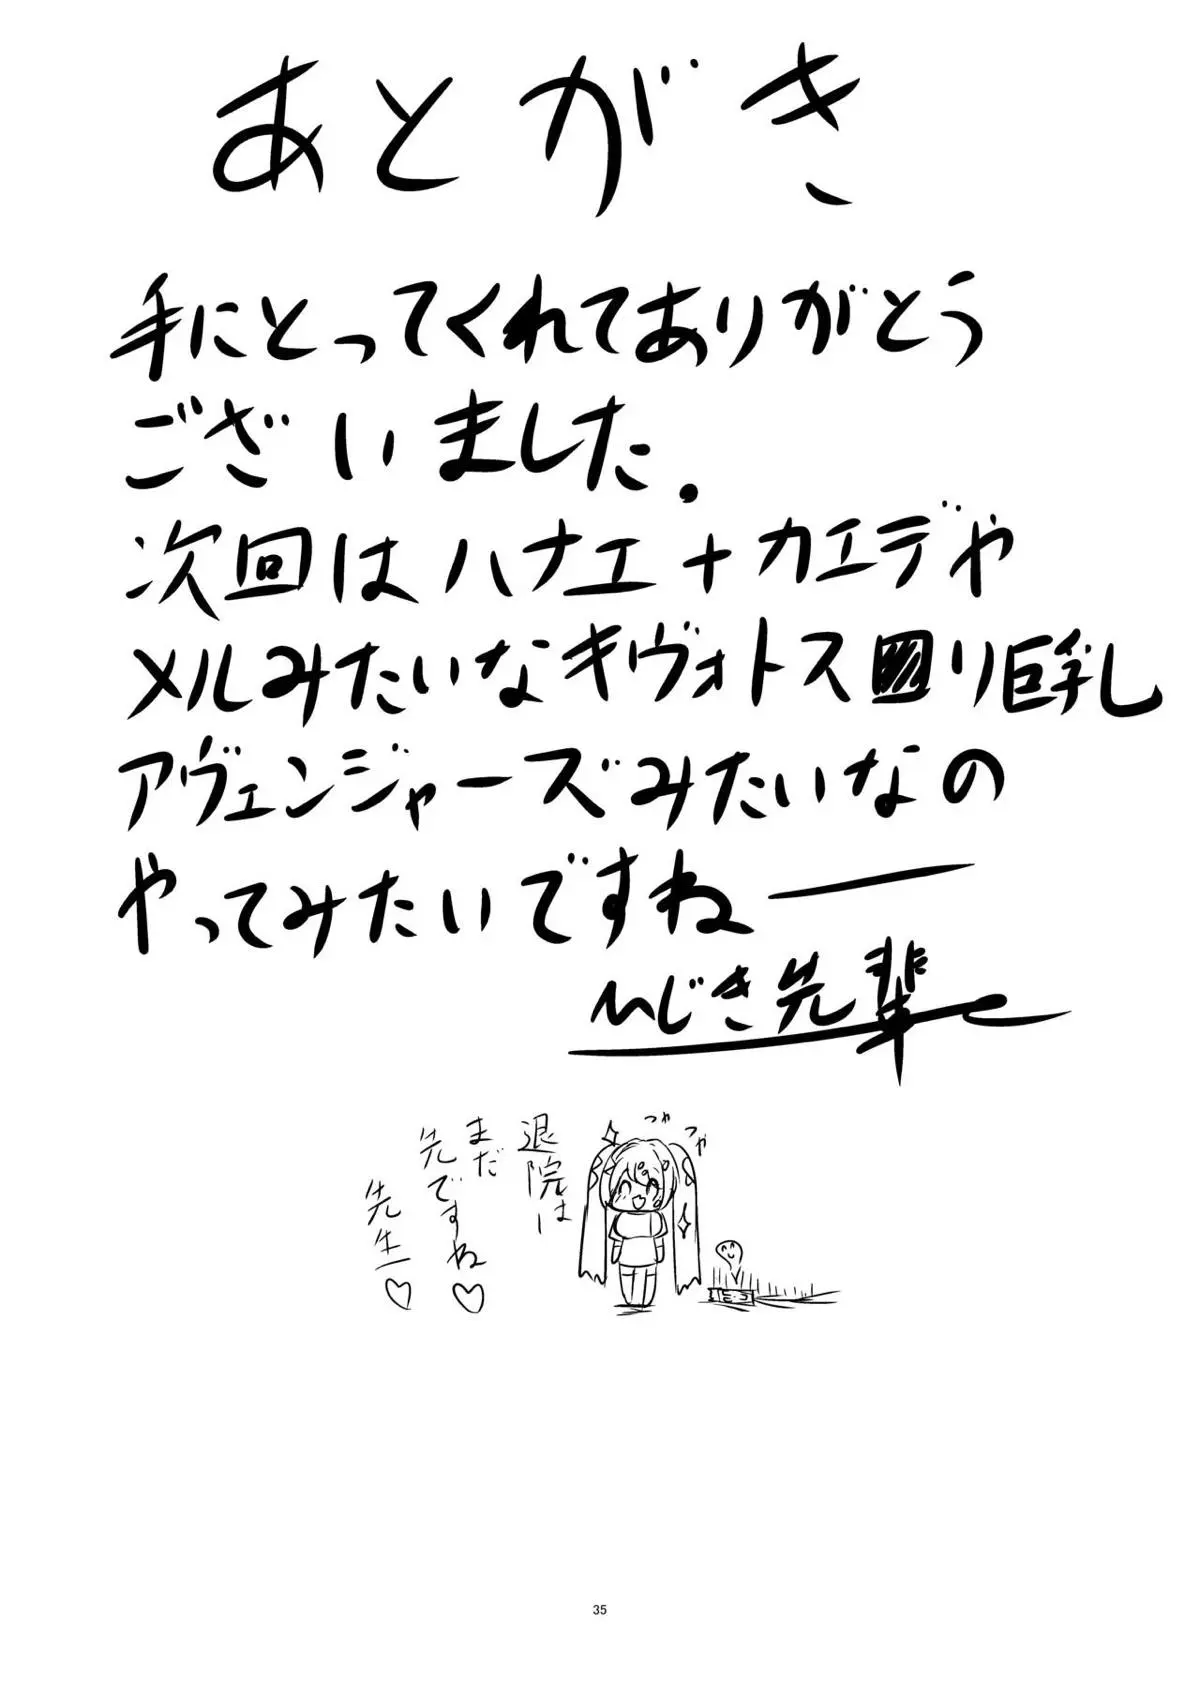 あとがき
手にとってくれてありがとう
ございました.
次回はハナエ+カエデや
メルみたいなキヴォトス囲り巨乳
アヴェンジャーズみたいなの
やってみたいですねー
ひじき先輩
退院は
まだ
先ですね♡
先生♡
つや
つや
35